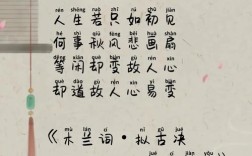 rén shēng ruò zhǐ rú chū jiàn
人生若只如初见
hé shì qiū fēng bēi huà shàn
何事秋风悲画扇
děng xián què biàn gù rén xīn
等闲却变故人心
què dào gù rén xīn yì biàn
却道故人心易变
mù lán cí nǐ gǔ jué
《木兰词·拟古决